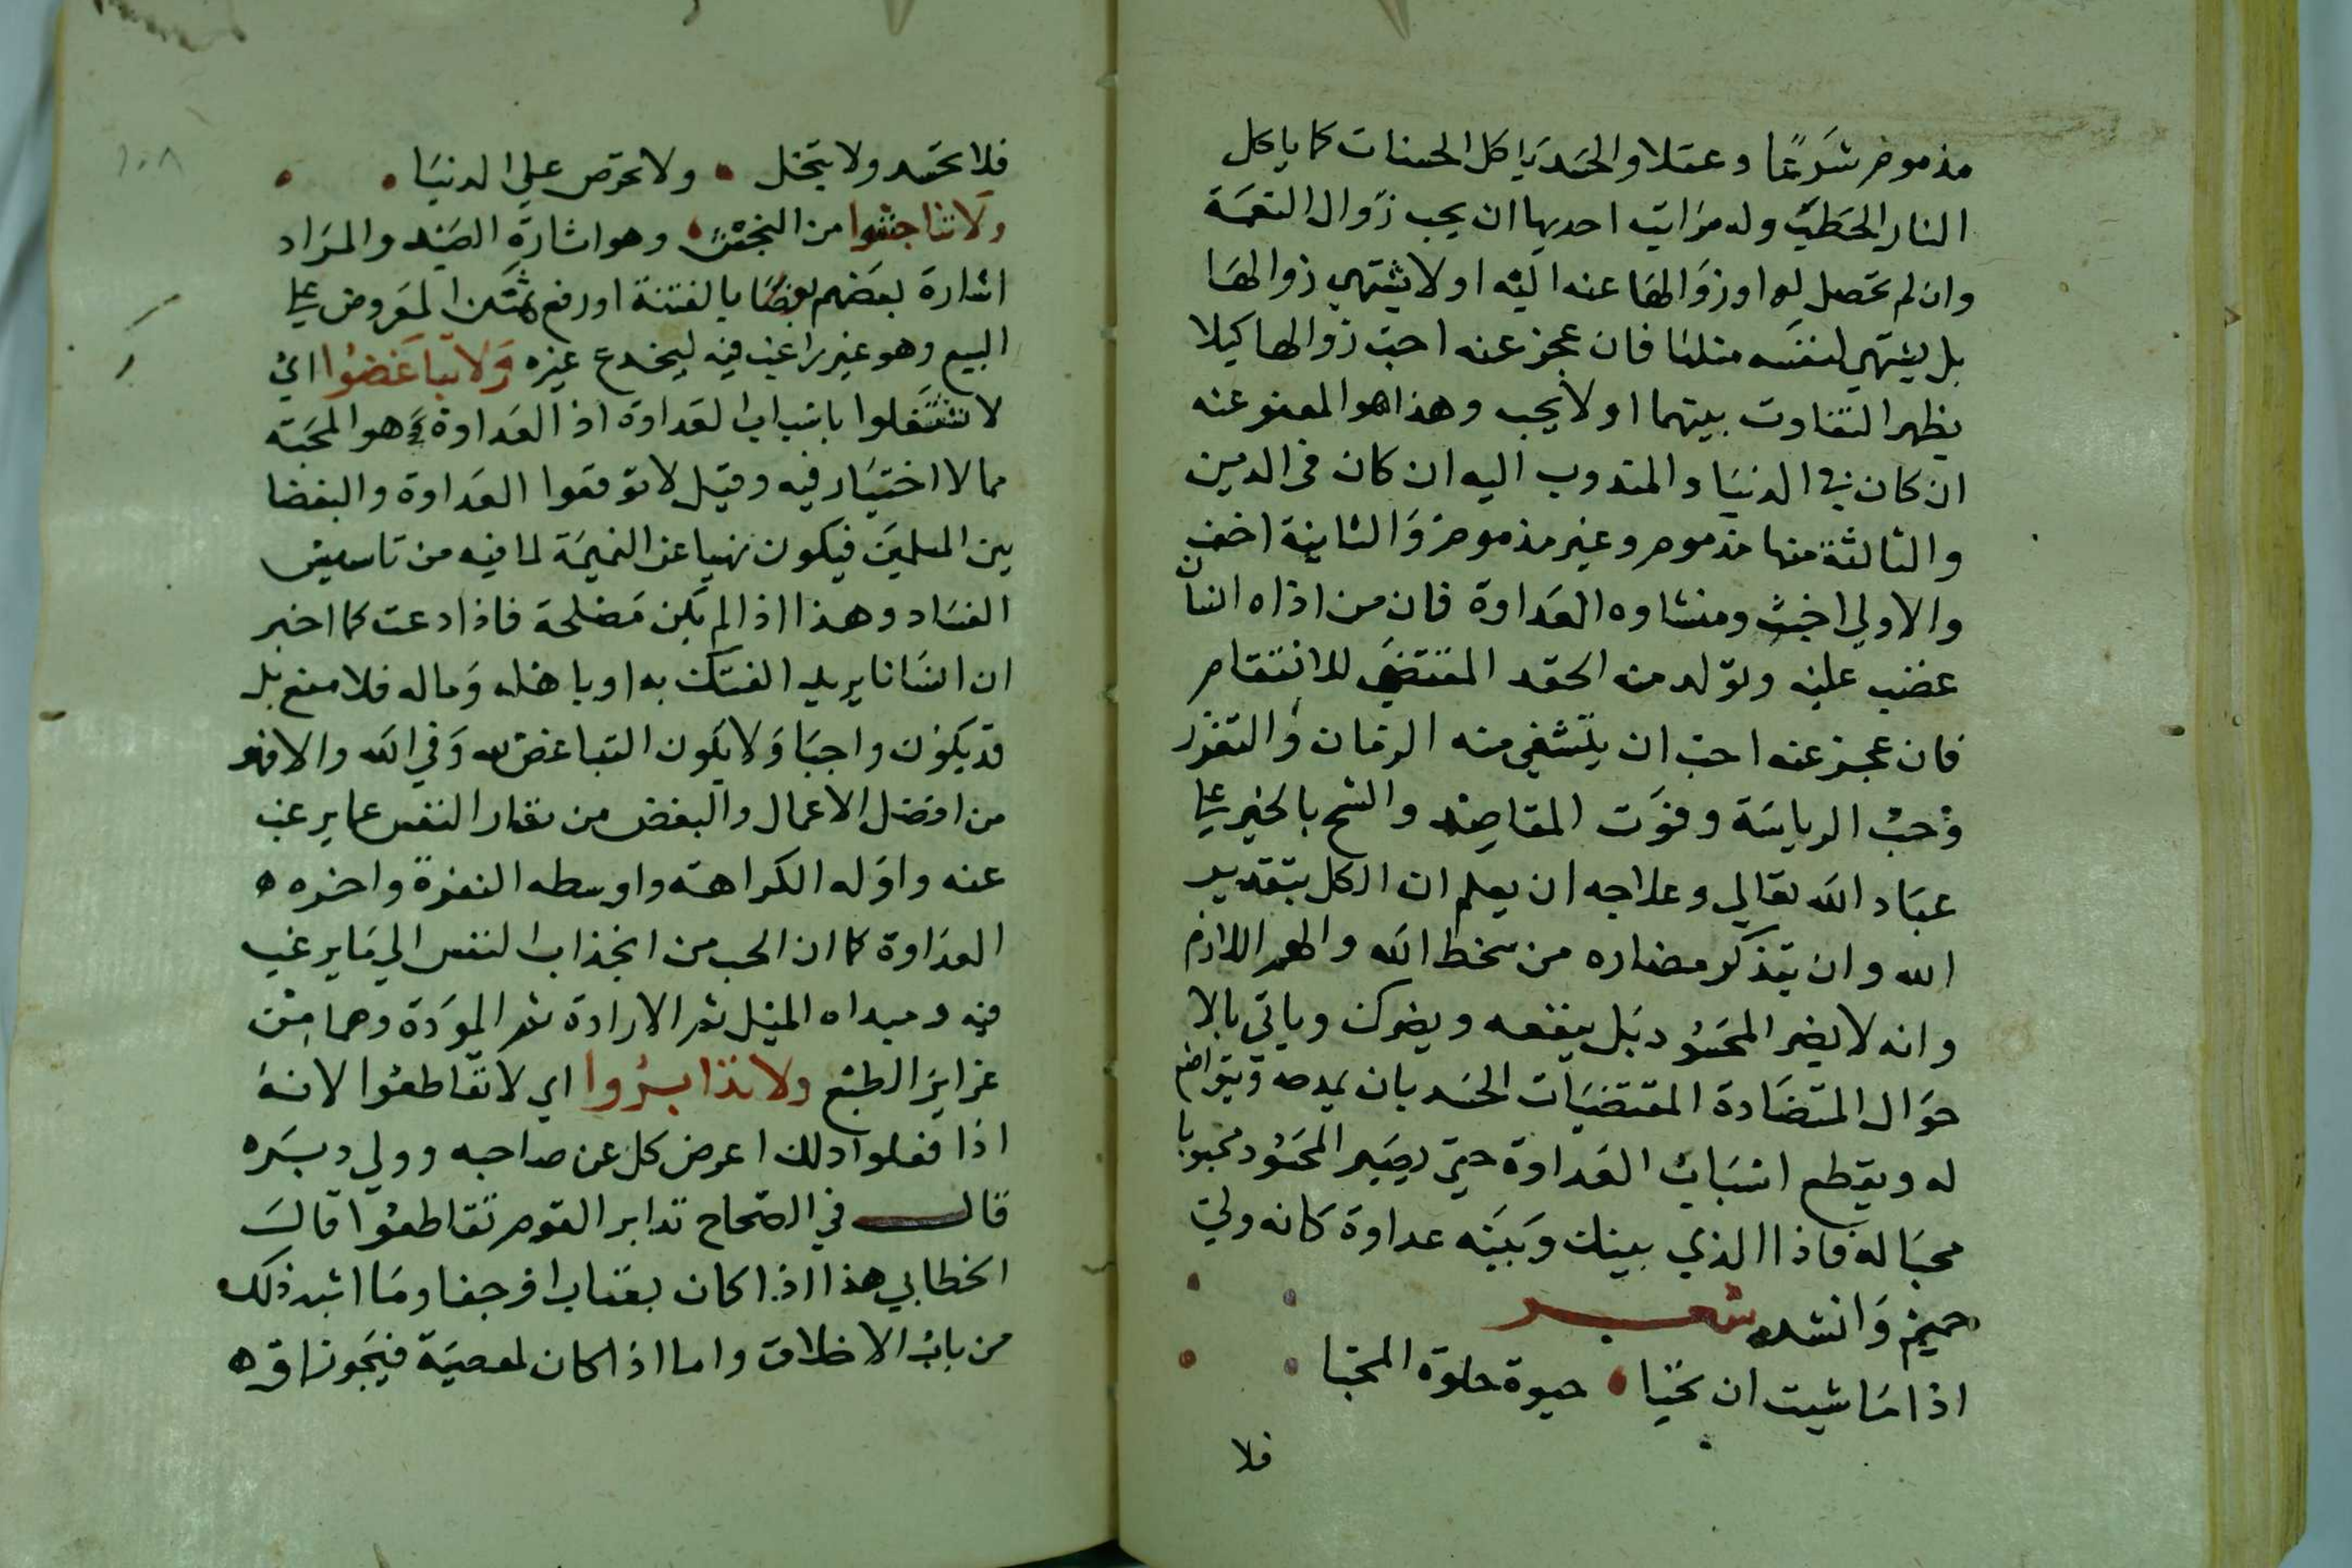 مذموم شرعا وعقلا والحسد ياكل الحسنات كما ياكل
النار الحطب وله مراتب احديها ان يحب زوال النعمة
وان لم تحصل له او زوالها عنه اليه او لا يشتهي زوالها
بل يشتهي لنفسه مثلها فان عجز عنه احب زوالها كيلا
يظهر التفاوت بينهما او لا يحب وهذا هو المعفو عنه
ان كان في الدنيا والمندوب اليه ان كان في الدين
والثالثة منها مذموم وغير مذموم والثانية اخف
والاولي اخبث ومنشاوه العداوة فان من اذاه انسان
غضب عليه وتولد منه الحقد المقتضي للانتقام
فان عجز عنه احب ان يتشفي منه الزمان والتعزز
وحب الرياسة وفوت المقاصد والشح بالخير علي
عباد الله تعالي وعلاجه ان يعلم ان الكل بتقدير
الله وان يتذكر مضاره من سخط الله والهم اللازم
وانه لا يضر المحسود بل ينفعه ويضرك وياتي بالا
حوال المتضادة المقتضيات الحسد بان يمدحه ويتواضع
له ويقطع اسباب العداوة حتي يصير المحسود محبوبا
محبا له فاذا الذي بينك وبينه عداوة كانه ولي
حميم وانشد شعر
اذا ما شيت ان تحيا • حيوة حلوة المحيا
فلا
١٠٨
فلا تحسد ولا تبخل • ولا تحرص علي الدنيا •
ولا تناجشوا من النجش • وهو اثارة الصيد والمراد
اثارة بعضهم بعضا بالفتنة او رفع ثمن المعروض علي
البيع وهو غير راغب فيه ليخدع غيره ولا تباغضوا اي
لا تشتغلوا باسباب العداوة اذ العداوة هو المحبة
مما لا اختيار فيه وقيل لا توقعوا العداوة والبغضا
بين المسلمين فيكون نهيا عن النميمة لما فيه من تاسيس
الفساد وهذا اذا لم يكن مصلحة فاذا دعت كما اخبر
ان انسانا يريد الفتك به او باهله وماله فلا منع بل
قد يكون واجبا ولا يكون التباغض لله وفي الله والا فهو
من افضل الاعمال والبغض من نفار النفس عما يرغب
عنه واوله الكراهة واوسطه النفرة واخره
العداوة كما ان الحب من انجذاب النفس الي ما يرغب
فيه ومبداه الميل ثم الارادة ثم المودة وهما من
غرايز الطبع ولا تدابروا اي لا تقاطعوا لانه
اذا فعلوا ذلك اعرض كل عن صاحبه وولي دبره
قال في الصحاح تدابر القوم تقاطعوا قال
الخطابي هذا اذا كان بعتاب او جفا وما اشبه ذلك
من باب الاخلاق واما اذا كان لمعصية فيجوز